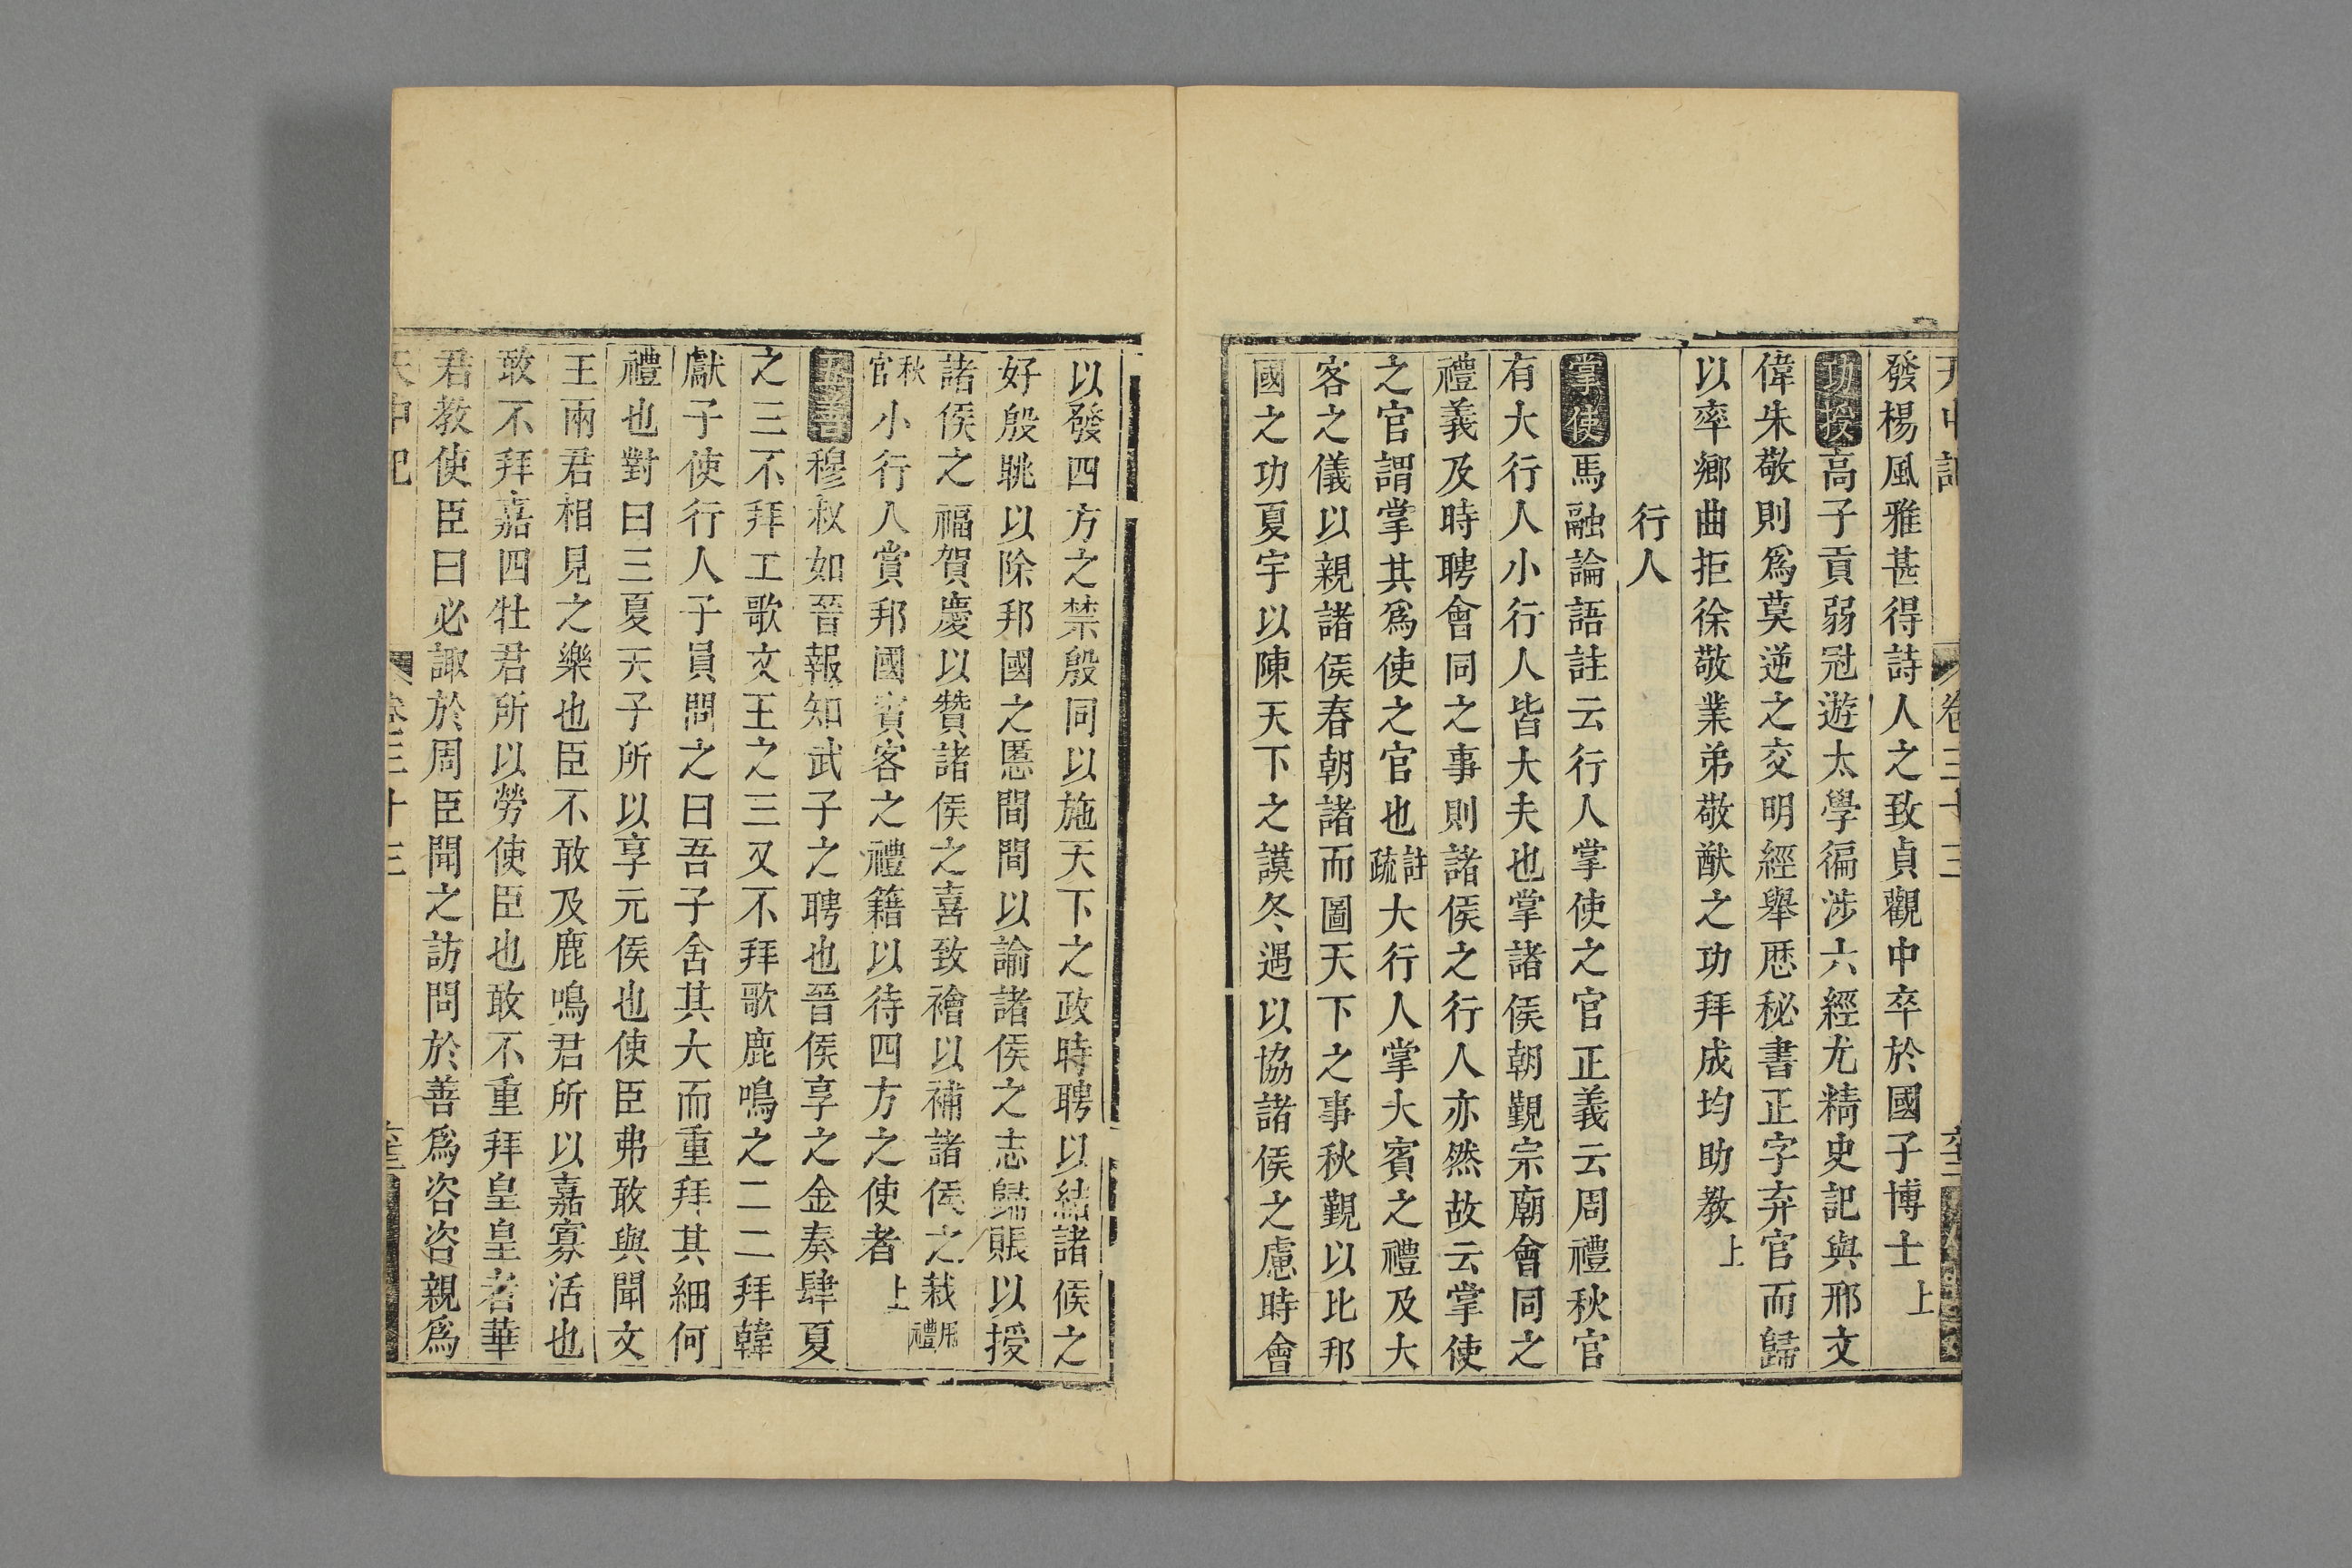 天中記 卷三十三 六十二
發楊風雅甚得詩人之致貞觀中卒於國子博士上
功授高子貢弱冠遊太學徧涉六經尤精史記與邢文
偉朱敬則爲莫逆之交明經舉歷秘書正字弃官而歸
以率鄉曲拒徐敬業弟敬猷之功拜成均助教上
行人
掌使馬融論語註云行人掌使之官正義云周禮秋官
有大行人小行人皆大夫也掌諸侯朝覲宗廟會同之
禮義及時聘會同之事則諸侯之行人亦然故云掌使
之官謂掌其爲使之官也註疏大行人掌大賓之禮及大
客之儀以親諸侯春朝諸而圖天下之事秋覲以比邦
國之功夏宇以陳天下之謨冬遇以協諸侯之慮時會
以發四方之禁殷同以施天下之政時聘以結諸侯之
好殷眺以除邦國之慝間間以諭諸侯之志歸賬以授
諸侯之福賀慶以贊諸侯之喜致禬以補諸侯之烖周禮
秋官小行人賞邦國賓客之禮籍以待四方之使者上
五善穆叔如晉報知武子之聘也晉侯享之金奏肆夏
之三不拜工歌文王之三又不拜歌鹿鳴之二二拜韓
獻子使行人子員問之曰吾子舍其大而重拜其細何
禮也對曰三夏天子所以享元侯也使臣弗敢與聞文
王兩君相見之樂也臣不敢及鹿鳴君所以嘉寡活也
敢不拜嘉四牡君所以勞使臣也敢不重拜皇皇者華
君教使臣曰必諏於周臣聞之訪問於善爲咨咨親爲
天中記 卷三十三 六十三